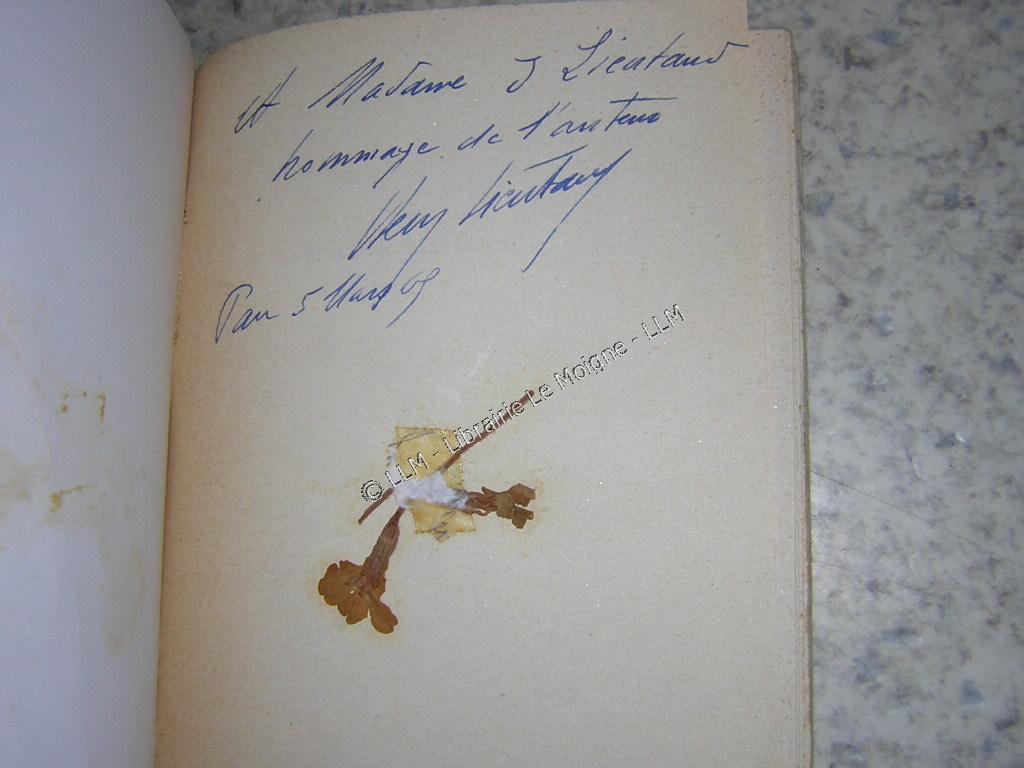 A Madame J Lieutaud
hommage de l'auteur
Henry Lieutaud
Pau 5 Mars 69
© LLM - Librairie Le Moigne - LLM